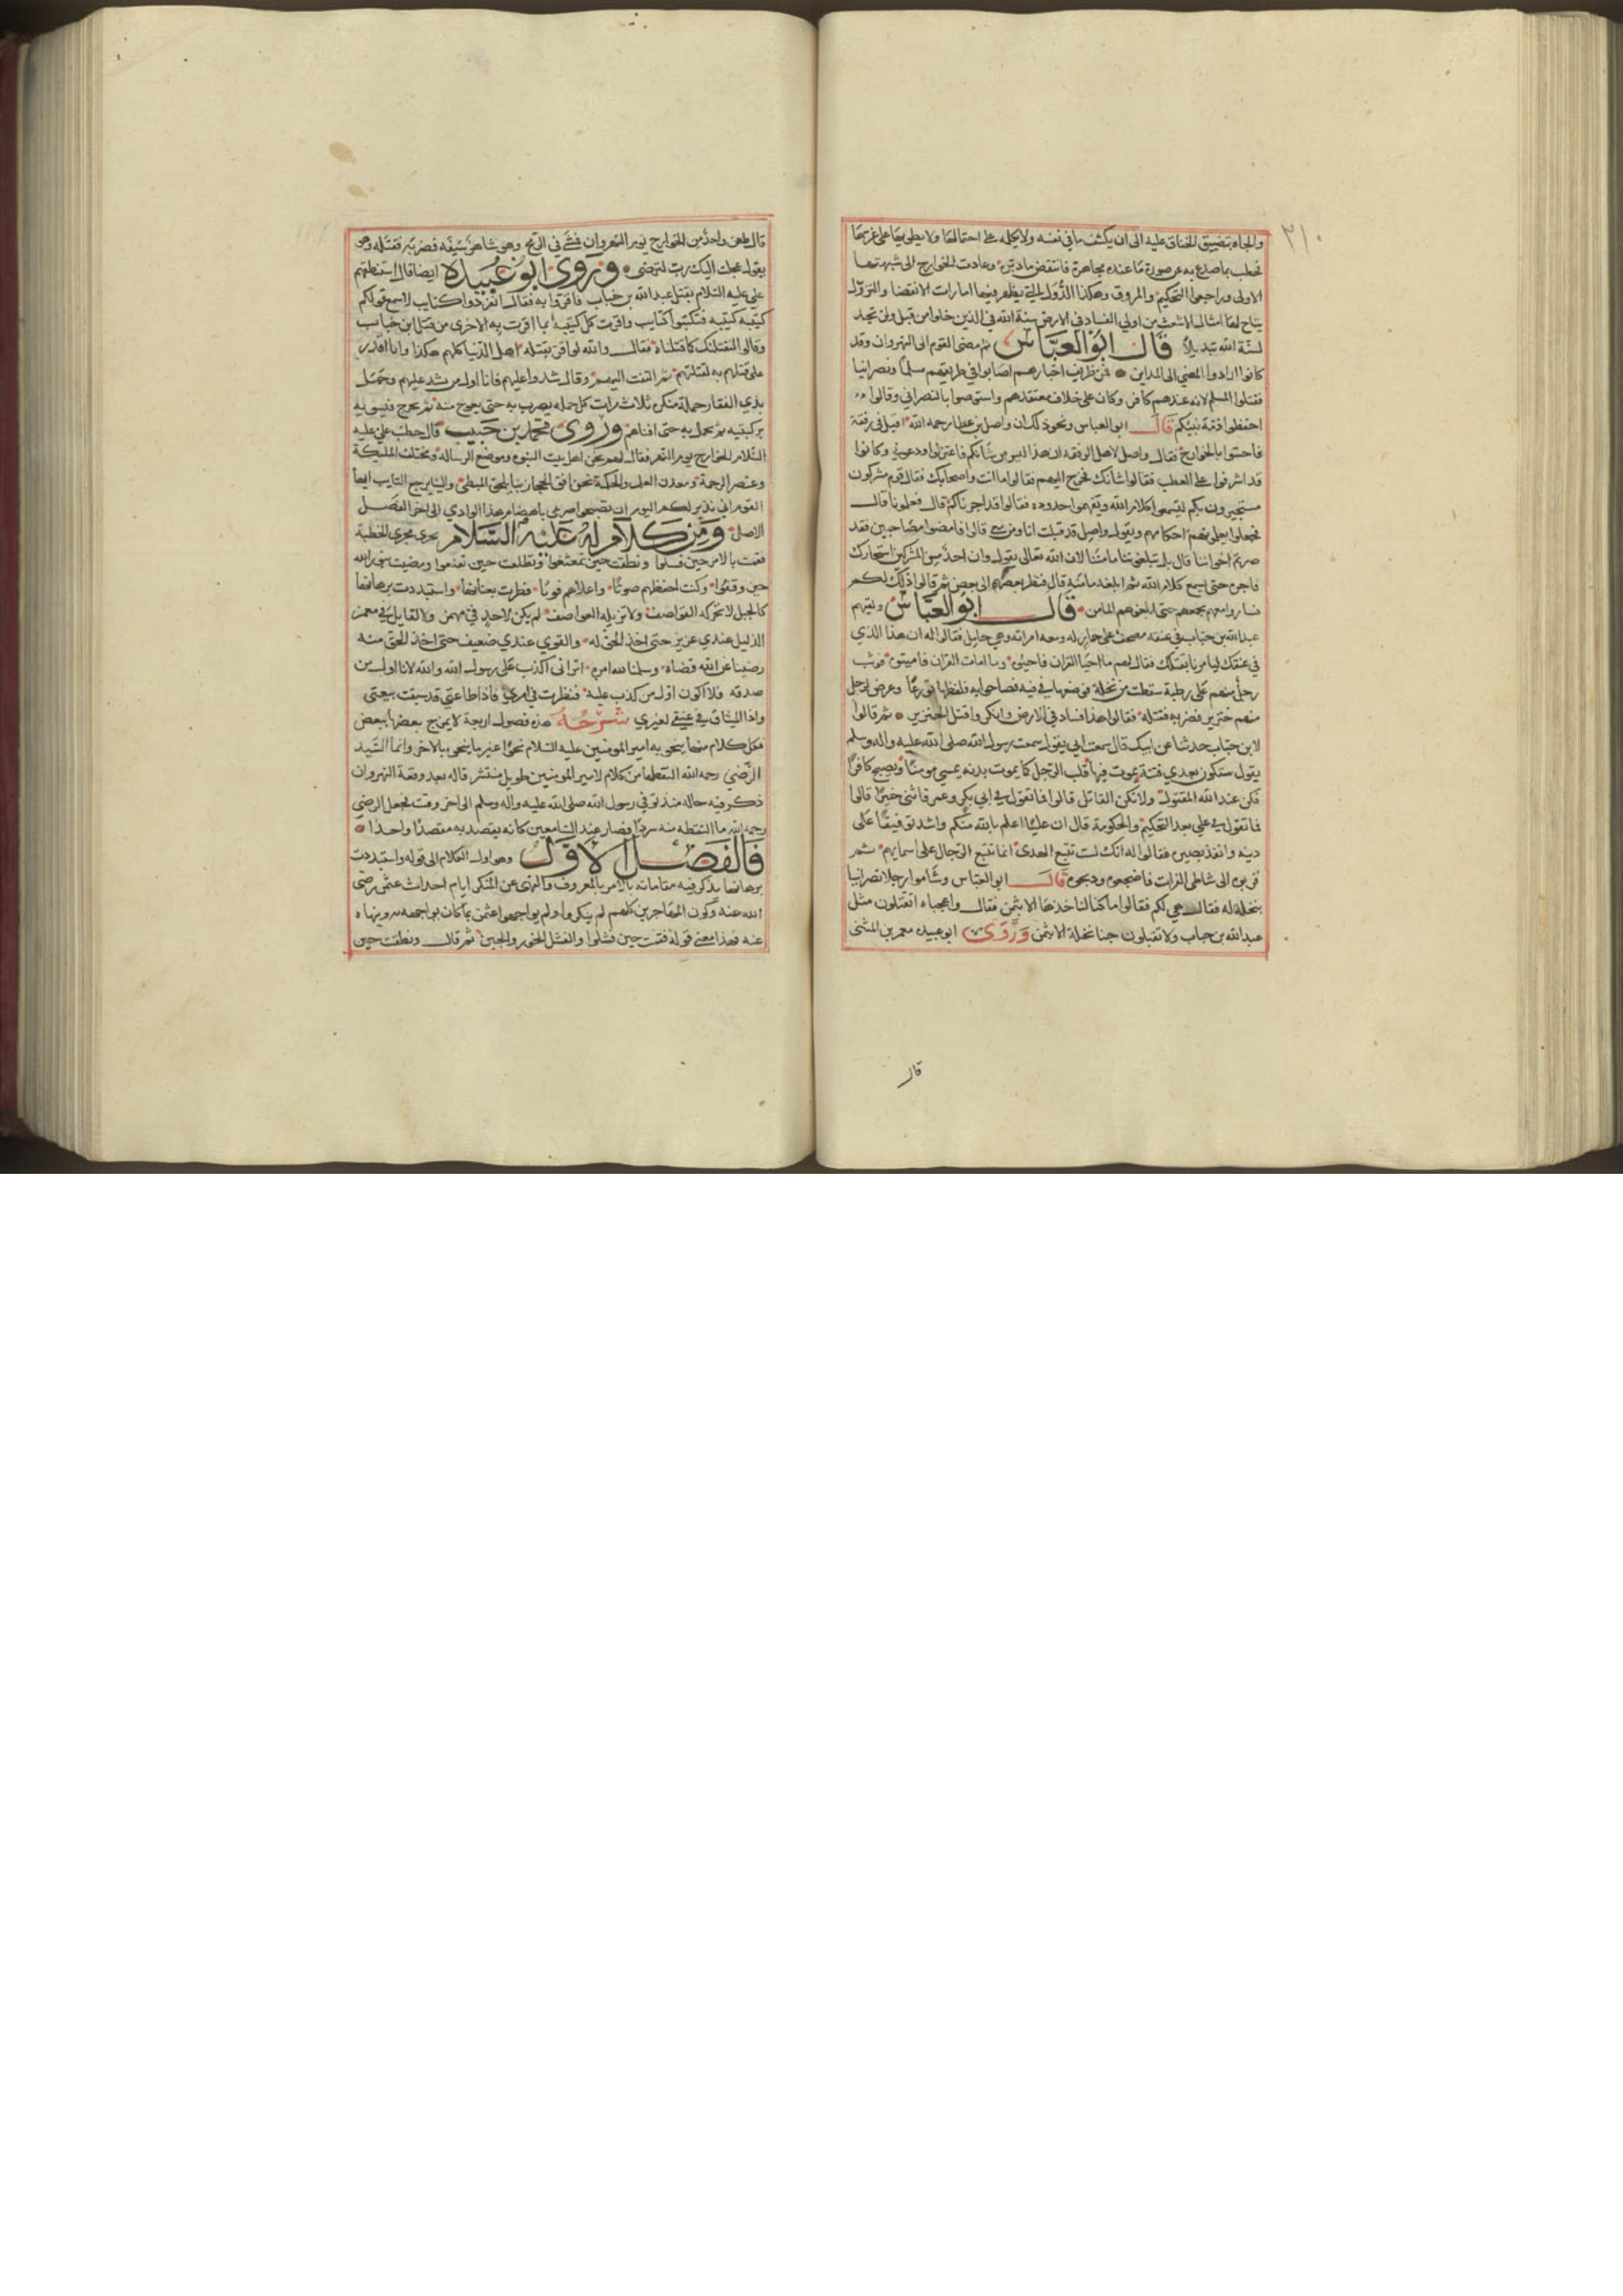 ٣١٠
والجاه بتضييق الخناق عليه الى ان يكشف ما في نفسه ولا يحمله على احتمالها ولا يطويها على غرتها
فخطب بما صدع به عن صورة ما عنده مجاهرة فانتقض مادبّره وعادت الخوارج الى شبهتها
الاولى وراجعوا التحكيم والمروق وهكذا الدول التي يظهر فيها امارات الانقضا والزوال
يتاح لها امثال الاشعث من اولي الفساد في الارض سنة الله في الذين خلوا من قبل ولن تجد
لسنّة الله تبديلاً قال ابو العباس ثم مضى القوم الى النهروان وقد
كانوا ارادوا المضي الى المداين فمن ظريف اخبارهم اصابوا في طريقهم مسلماً ونصرانيا
فقتلوا المسلم لانه عندهم كافر وكان على خلاف معتقدهم واستوصوا بالنصراني وقالوا
احفظوا ذمة نبيكم قال ابو العباس ونحو ذلك ان واصل بن عطا رحمه الله اقبل في رفقة
فاحسّوا بالخوارج فقال واصل لاهل الرفقة ان هذا ليس من شانكم فاعتزلوا ودعوني وكانوا
قد اشرفوا على العطب فقالوا شانك فخرج اليهم فقالوا ما انت واصحابك فقال قوم مشركون
مستجيرون بكم ليسمعوا كلام الله ويفهموا حدوده فقالوا قد اجرناكم قال فعلمونا قال
فجعلوا يعلمونهم احكامهم ويقول واصل قد قبلت انا ومن معي قالوا فامضوا مصاحبين فقد
صرتم اخواننا قال بل تبلغوننا مامننا لان الله تعالى يقول وان احد من المشركين استجارك
فاجره حتى يسمع كلام الله ثم ابلغه مامنه قال فنظر بعضهم الى بعض ثم قالوا ذلك لكم
فساروا معهم بجمعهم حتى ابلغوهم المامن قال ابو العباس ولقيهم
عبدالله بن خباب في عنقه مصحف على حمار له ومعه امراته وهي حامل فقالوا له ان هذا الذي
في عنقك ليامرنا بقتلك فقال لهم ما احيا القران فاحيوه وما امات القران فاميتوه فوثب
رجل منهم على رطبة سقطت من نخلة فوضعها في فيه فصاحوا به فلفظها تورعاً وعرض لرجل
منهم خنزير فضربه فقتله فقالوا هذا فساد في الارض وانكروا قتل الخنزير ثم قالوا
لابن خباب حدثنا عن ابيك قال سمعت ابي يقول سمعت رسول الله صلى الله عليه واله وسلم
يقول ستكون بعدي فتنة يموت فيها قلب الرجل كما يموت بدنه يمسي مومناً ويصبح كافراً
فكن عند الله المقتول ولا تكن القاتل قالوا فما تقول في ابي بكر وعمر فاثنى خيراً قالوا
فما تقول في علي بعد التحكيم والحكومة قال ان عليّاً اعلم بالله منكم واشد توقيفاً على
دينه وانفذ بصيرة فقالوا له انك لست تتبع الهدى انما تتبع الرجال على اسمايهم ثم
قربوه الى شاطي الفرات فاضجعوه وذبحوه قال ابو العباس وساموا رجلا نصرانيا
بنخلة له فقال هي لكم فقالوا ما كنا لناخذها الا بثمن فقال واعجباه اتقتلون مثل
عبدالله بن خباب ولا تقبلون جنا نخلة الا بثمن وروى ابو عبيده معمر بن المثنى
قال
قال طعن واحد من الخوارج يوم النهروان فمشى في الرمح وهو شاهر سيفه فضربه فقتله وهو
يقول عجلت اليك رب لترضى وروى ابو عبيدة ايضا قال استنطقهم
علي عليه السلام بقتل عبدالله بن خباب فاقروا به فقال انفردوا كتايب لاسمع قولكم
كتيبه كتيبه فتكتبوا كتايب واقرت كل كتيبه بما اقرت به الاخرى من قتل ابن خباب
وقالوا لنقتلنك كما قتلناه فقال والله لو اقر بقتله اهل الدنيا كلهم هكذا وانا اقدر
على قتلهم به لقتلتهم ثم التفت اليهم وقال شدوا عليهم فانا اول من يشد عليهم وحمل
بذي الفقار حملة منكره ثلاث مرات كل حمله يضرب به حتى يعوج متنه ثم يخرج فيسويه
بركبتيه ثم يحمل به حتى افناهم وروى محمد بن حبيب قال خطب علي عليه
السلام الخوارج يوم النهر فقال لهم نحن اهل بيت النبوه وموضع الرساله ومختلف المليكة
وعنصر الرحمة ومعدن العلم والحكمة نحن افق الحجاز بنا يلحق البطي والينا يرجع التايب ايها
القوم اني نذير لكم اليوم ان تصبحوا صرعى باهضام هذا الوادي الى اخر الفصل
الاصل ومن كلام له عليه السلام يجرى مجرى الخطبة
فقمت بالامر حين فشلوا ونطقت حين تعتعوا وتطلعت حين تقبعوا ومضيت بنور الله
حين وقفوا وكنت اخفظهم صوتاً واعلاهم فوتاً فطرت بعنانها واستبددت برهانها
كالجبل لا تحركه القواصف ولا تزيله العواصف لم يكن لاحد فيّ مهمز ولا لقايل فيّ مغمز
الذليل عندي عزيز حتى اخذ الحق له والقوي عندي ضعيف حتى اخذ الحق منه
رضينا عن الله قضاه وسلمنا لله امره اتراني اكذب على رسول الله والله لانا اول من
صدقه فلا اكون اول من كذب عليه فنظرت في امري فاذا طاعتي قد سبقت بيعتي
واذا الميثاق في عنقي لغيري شرحه هذه فصول اربعة لا يمتزج بعضها ببعض
فكل كلام منها ينحو به امير المومنين عليه السلام نحواً غير ما ينحو بالاخر وانما السيد
الرضي رحمه الله التقطها من كلام لامير المومنين طويل منتشر قاله بعد وقعة النهروان
ذكر فيه حاله منذ توفي رسول الله صلى الله عليه واله وسلم الى اخر وقت فجعل الرضي
رحمه الله ما التقطه منه سرداً فصار عند السامعين كانه يقصد به مقصداً واحداً
فالفصل الاول وهو اول الكلام الى قوله واستبددت
برهانها يذكر فيه مقاماته بالامر بالمعروف والنهي عن المنكر ايام احداث عثمن رضى
الله عنه وكون المهاجرين كلهم لم ينكروا ولم يواجهوا عثمن بما كان يواجهه به وينهاه
عنه فهذا معنى قوله فقمت حين فشلوا والفشل الخور والجبن ثم قال ونطقت حين